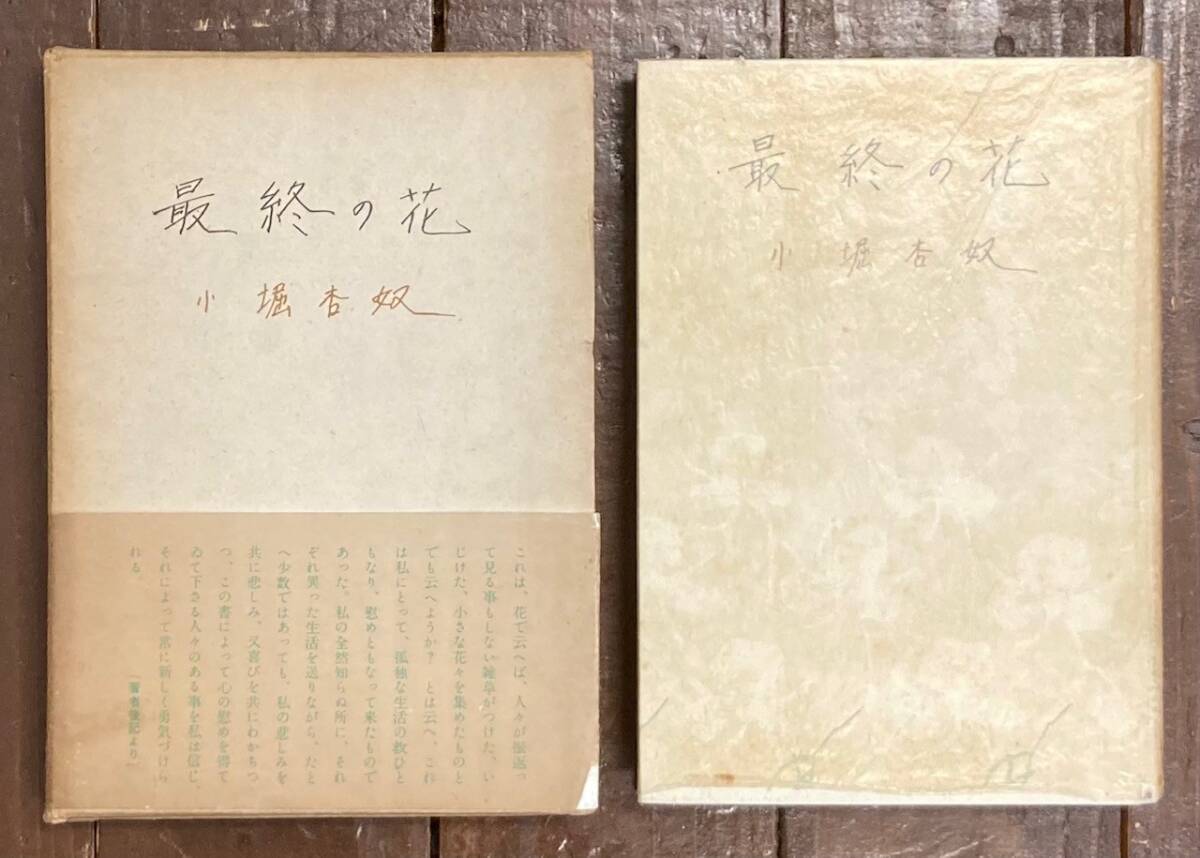 最終の花
小堀杏奴
これは、花で云へば、人々が振返っ
て見る事もしない雑草がつけた、い
じけた、小さな花々を集めたものと
でも云へようか? とは云へ、これ
は私にとって、孤独な生活の救ひと
もなり、慰めともなって来たもので
あった。私の全然知らぬ所に、それ
ぞれ異った生活を送りながら、たと
へ少数ではあっても、私の悲しみを
共に悲しみ、又喜びを共にわかちつ
つ、この書によって心の慰めを得て
ゐて下さる人々のある事を私は信じ、
それによって常に新しく勇気づけら
れる。
―著者後記より―
最終の花
小堀杏奴